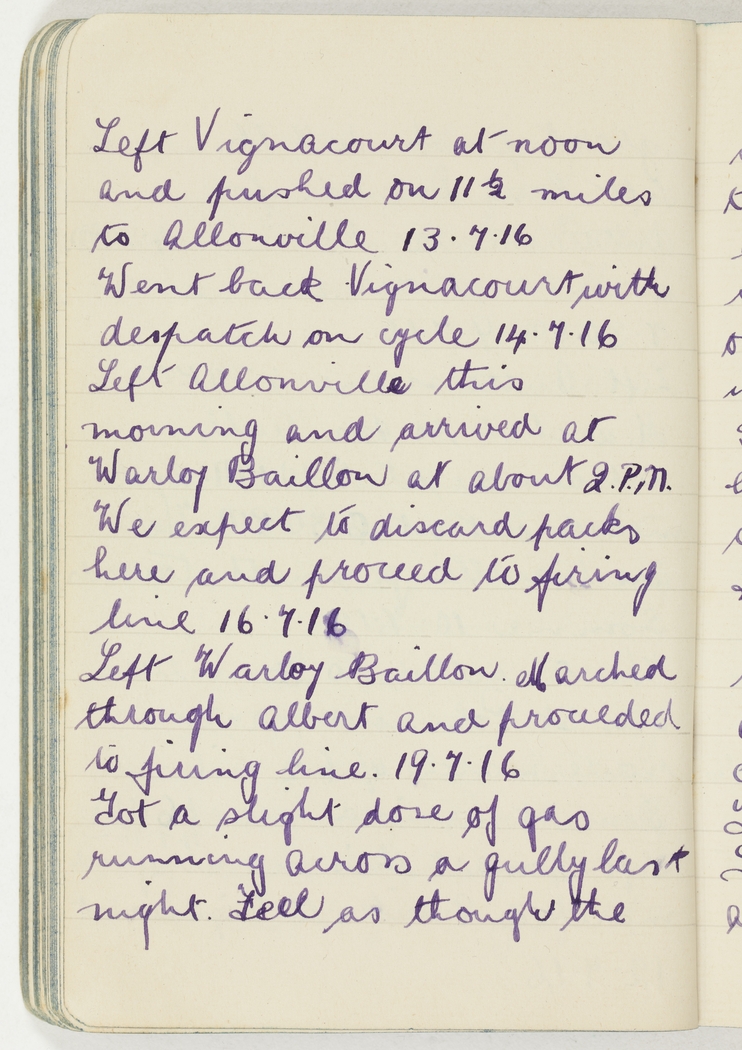 Left Vignacourt at noon
and pushed on 11½ miles
to Allonville 13.7.16
Went back Vignacourt with
despatch on cycle 14.7.16
Left Allonville this
morning and arrived at
Warloy Baillon at about 2.P.M.
We expect to discard packs
here and proceed to firing
line 16.7.16
Left Warloy Baillon. Marched
through Albert and proceeded
to firing line. 19.7.16
Got a slight dose of gas
running across a gully last
night. Feel as though the